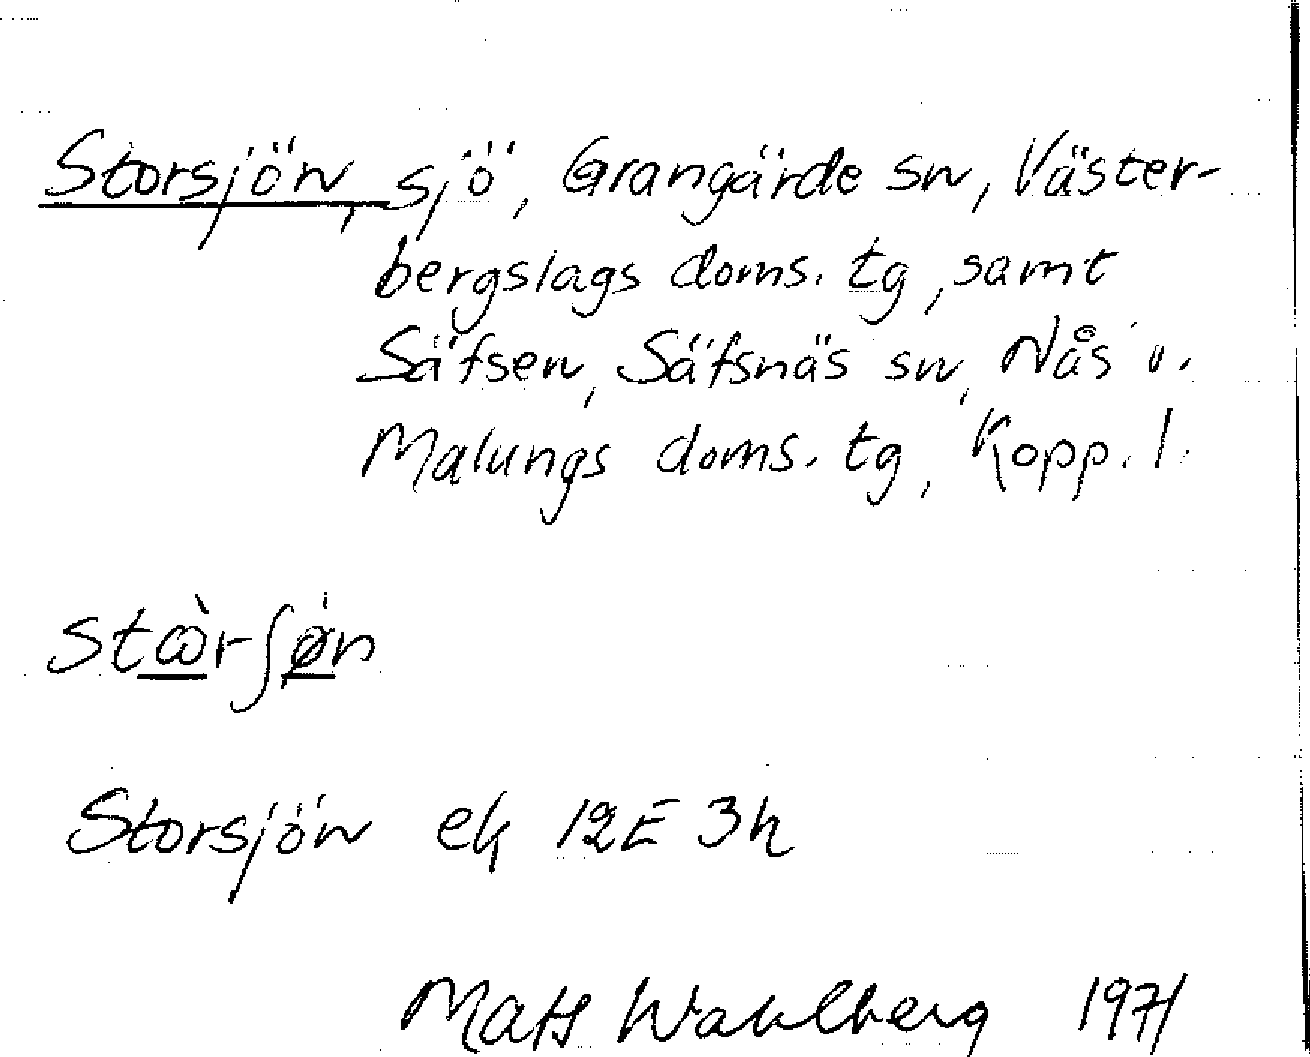 Storsjön, sjö, Grangärde sn, Väster-
bergslags doms. tg, samt
Säfsen, Säfsnäs sn, Nås o.
Malungs doms. tg, Kopp. l.
stꝏ̀rʃø̇n
Storsjön ek 12E 3h
Mats Wahlberg 1971